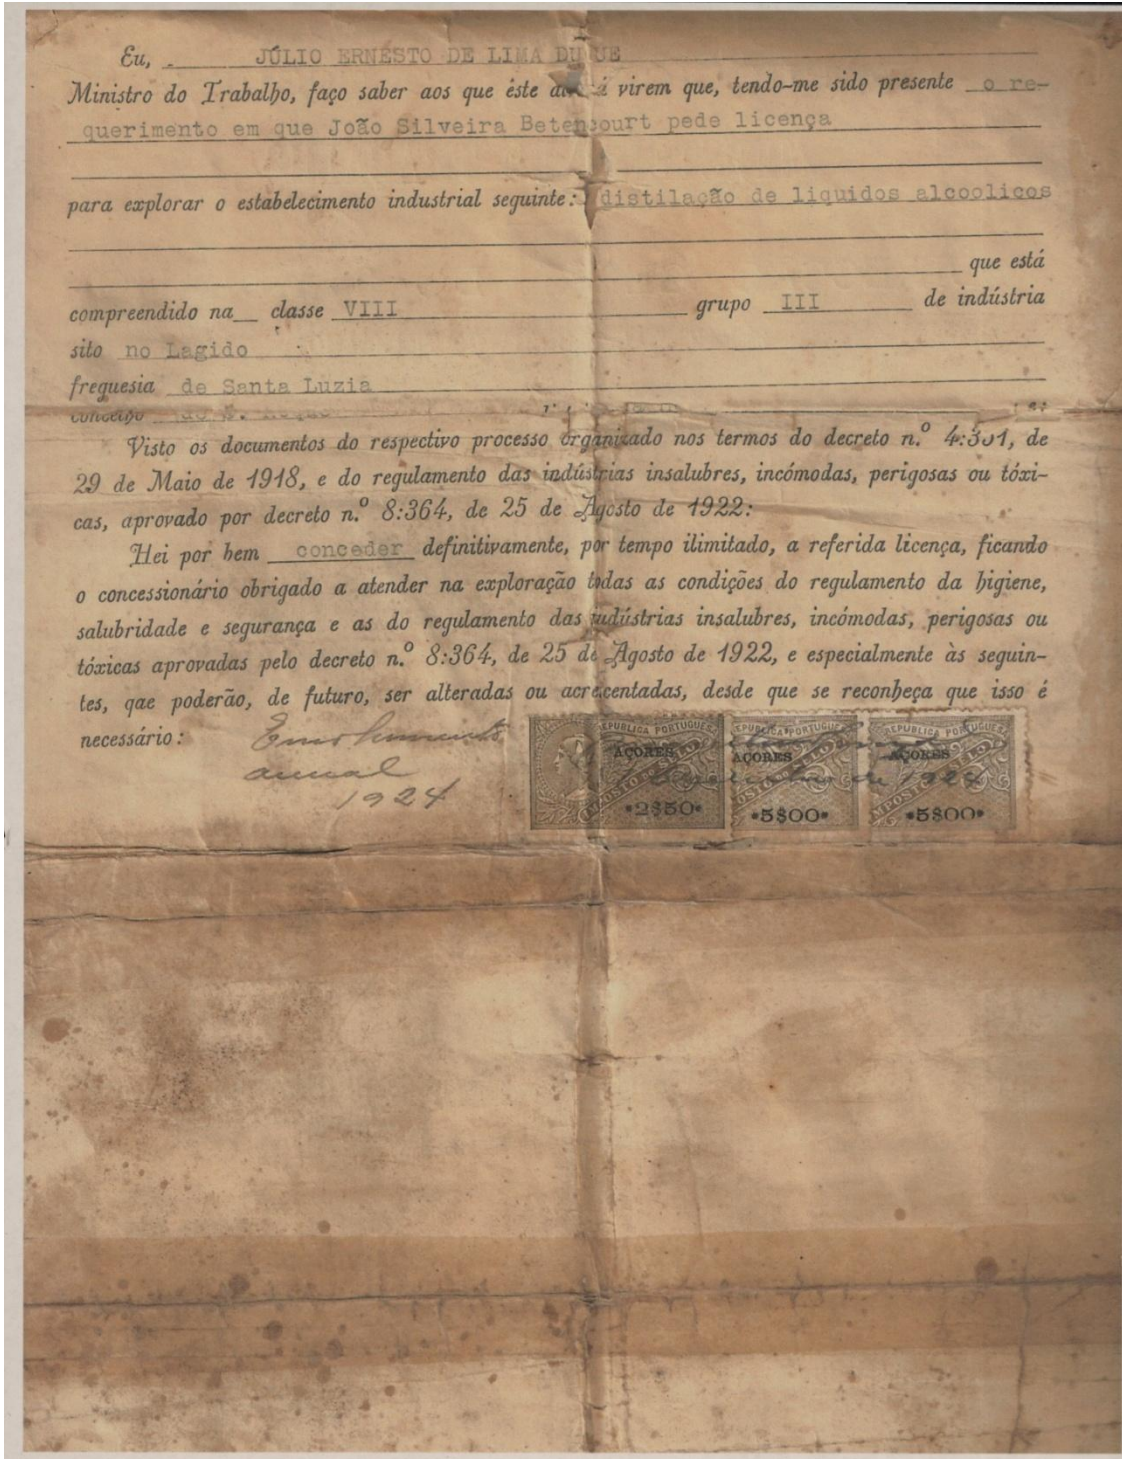 Eu, JÚLIO ERNESTO DE LIMA DUQUE
Ministro do Trabalho, faço saber aos que êste virem que, tendo-me sido presente o re-
querimento em que João Silveira Betencourt pede licença
para explorar o estabelecimento industrial seguinte: distilação de liquidos alcoolicos
que está
compreendido na classe VIII grupo III de indústria
sito no Lagido
freguesia de Santa Luzia
concelho de S. Roque
Visto os documentos do respectivo processo organizado nos termos do decreto n.º 4:351, de
29 de Maio de 1918, e do regulamento das indústrias insalubres, incómodas, perigosas ou tóxi-
cas, aprovado por decreto n.º 8:364, de 25 de Agosto de 1922:
Hei por bem conceder definitivamente, por tempo ilimitado, a referida licença, ficando
o concessionário obrigado a atender na exploração todas as condições do regulamento da higiene,
salubridade e segurança e as do regulamento das indústrias insalubres, incómodas, perigosas ou
tóxicas aprovadas pelo decreto n.º 8:364, de 25 de Agosto de 1922, e especialmente às seguin-
tes, qae poderão, de futuro, ser alteradas ou acrecentadas, desde que se reconheça que isso é
necessário: Emolumento
annual
1924
REPUBLICA PORTUGUESA REPUBLICA PORTUGUESA REPUBLICA PORTUGUESA
AÇORES AÇORES AÇORES
de 1924
IMPOSTO DO SELO IMPOSTO DO SELO IMPOSTO DO SELO
2$50 5$00 5$00